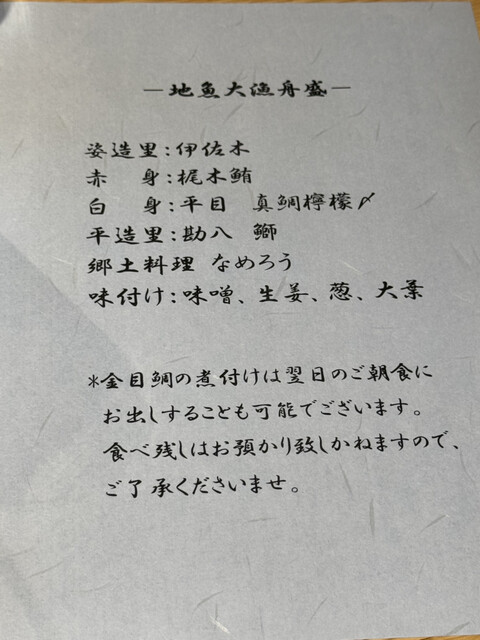 ―地魚大漁舟盛―
姿造里:伊佐木
赤 身:梶木鮪
白 身:平目 真鯛檸檬〆
平造里:勘八 鰤
郷土料理 なめろう
味付け:味噌、生姜、葱、大葉
*金目鯛の煮付けは翌日のご朝食に
お出しすることも可能でございます。
食べ残しはお預かり致しかねますので、
ご了承くださいませ。